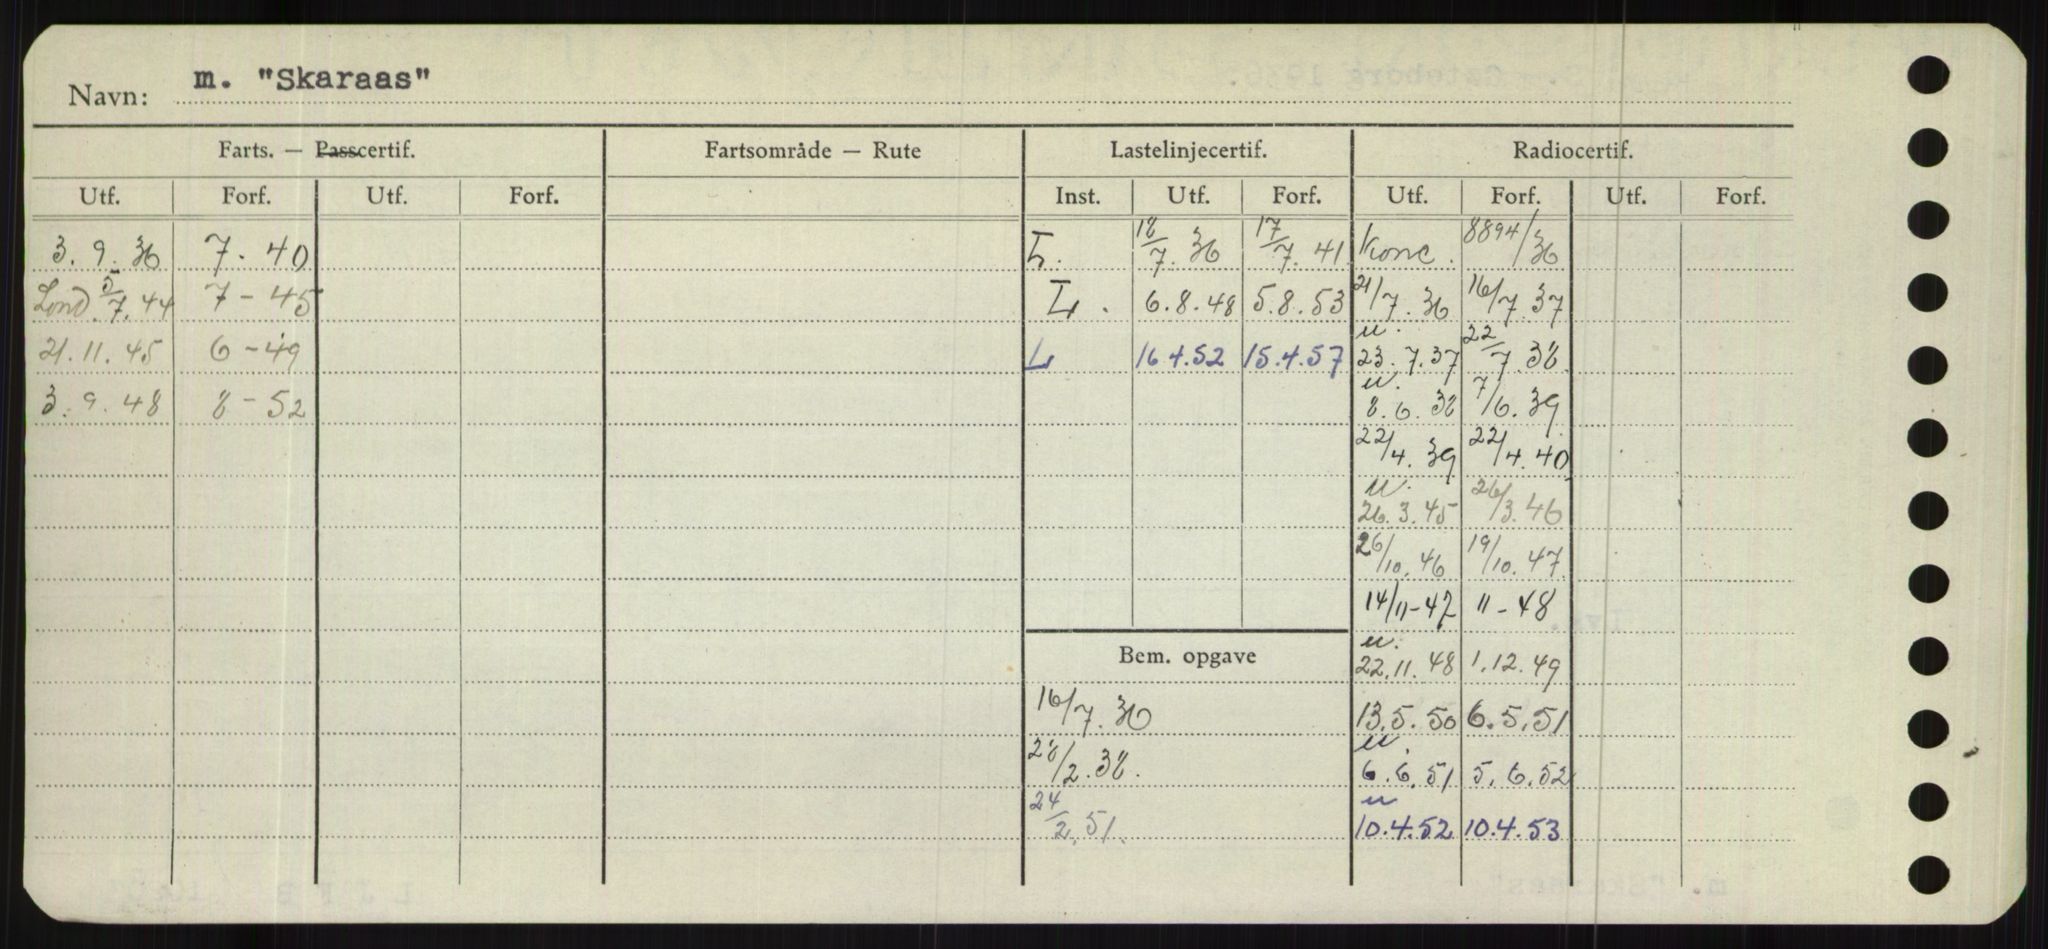 Navn: m. "Skaraas"
Farts. — Passcertif. Fartsområde — Rute Lastelinjecertif. Radiocertif.
Utf. Forf. Utf. Forf. Inst. Utf. Forf. Utf. Forf. Utf. Forf.
3. 9. 36 7. 40 L. 18/7. 36 17/7. 41 Konc. 8894/36
Lond. 5/7. 44 7 - 45 L. 6.8.48 5.8.53 21/7. 36 16/7. 37
21. 11. 45 6 - 49 L 16 4.52 15.4.57 u. 23. 7. 37 22/7. 38
3. 9. 48 8 - 52 u. 8. 6. 38 7/6. 39
22/4. 39 22/4. 40
u. 26. 3. 45 26/3. 46
26/10. 46 19/10. 47
14/11-47 11 - 48
Bem. opgave u. 22. 11. 48 1. 12. 49
16/7. 36 13. 5. 50 6. 5. 51
28/2. 38. u. 6. 6. 51 5. 6. 52
24/2. 51. u 10.4.52 10.4.53